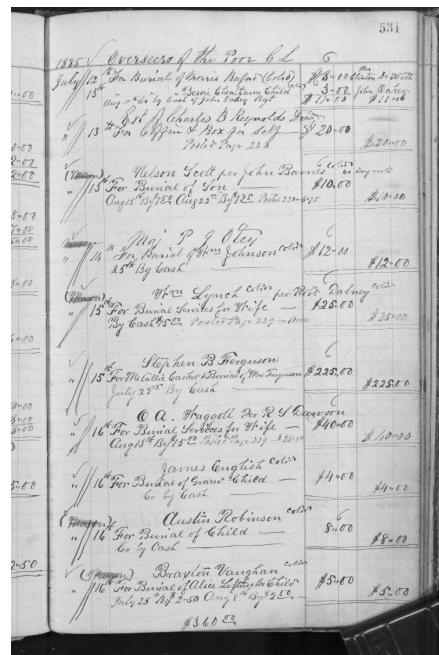 531
1885 Overseers of the Poor C L
July 12th For Burial of Morris Buford (Cold) $8-00
15th " Bessie Cheatham Child cold 3-00 John Oakey
Aug 11th 85 By Cash of John Oakey Agt $11-00 $11-00
Est of Charles B Reynolds Dead
" 13th For Coffin & Box for Self — $20-00
Posted Page 228 $20-00
Nelson Scott per John Barnes Cold 60 Days note
" 15th For Burial of Son $10.00
Aug 15th By $1 50 Aug 22nd By $1 25 $10-00
Maj P J Otey
" 14th For Burial of Wm Johnson Cold $12-00
25th By Cash $12-00
(Mason) Wm Lynch Cold per Robt Dabney Cold
" 15th For Burial Services for Wife — $25-00
By Cash $15 00 Posted Page 229 — 10-00 $25-00
Stephen B Ferguson
" 15th For Metalic Casket & Burial of Mrs Ferguson $225.00
July 22nd By Cash $225.00
C A. Wagoll Per R S Dawson
" 16th For Burial Services for Wife — $40-00
Aug 13th By $15 00 Posted Page 229 — $25-00 $40-00
James English Cold
" 16th For Burial of Child — $4-00
Cr by Cash $4-00
(Mason) Austin Robinson Cold
" 16th For Burial of Child — 8-00
Cr by Cash $8-00
(Mason) Braxton Vaughan Cold
" 16th For Burial of Alice Child $5-00
July 25th By $2-50 Aug 8th By $2 50. $5-00
$360 00